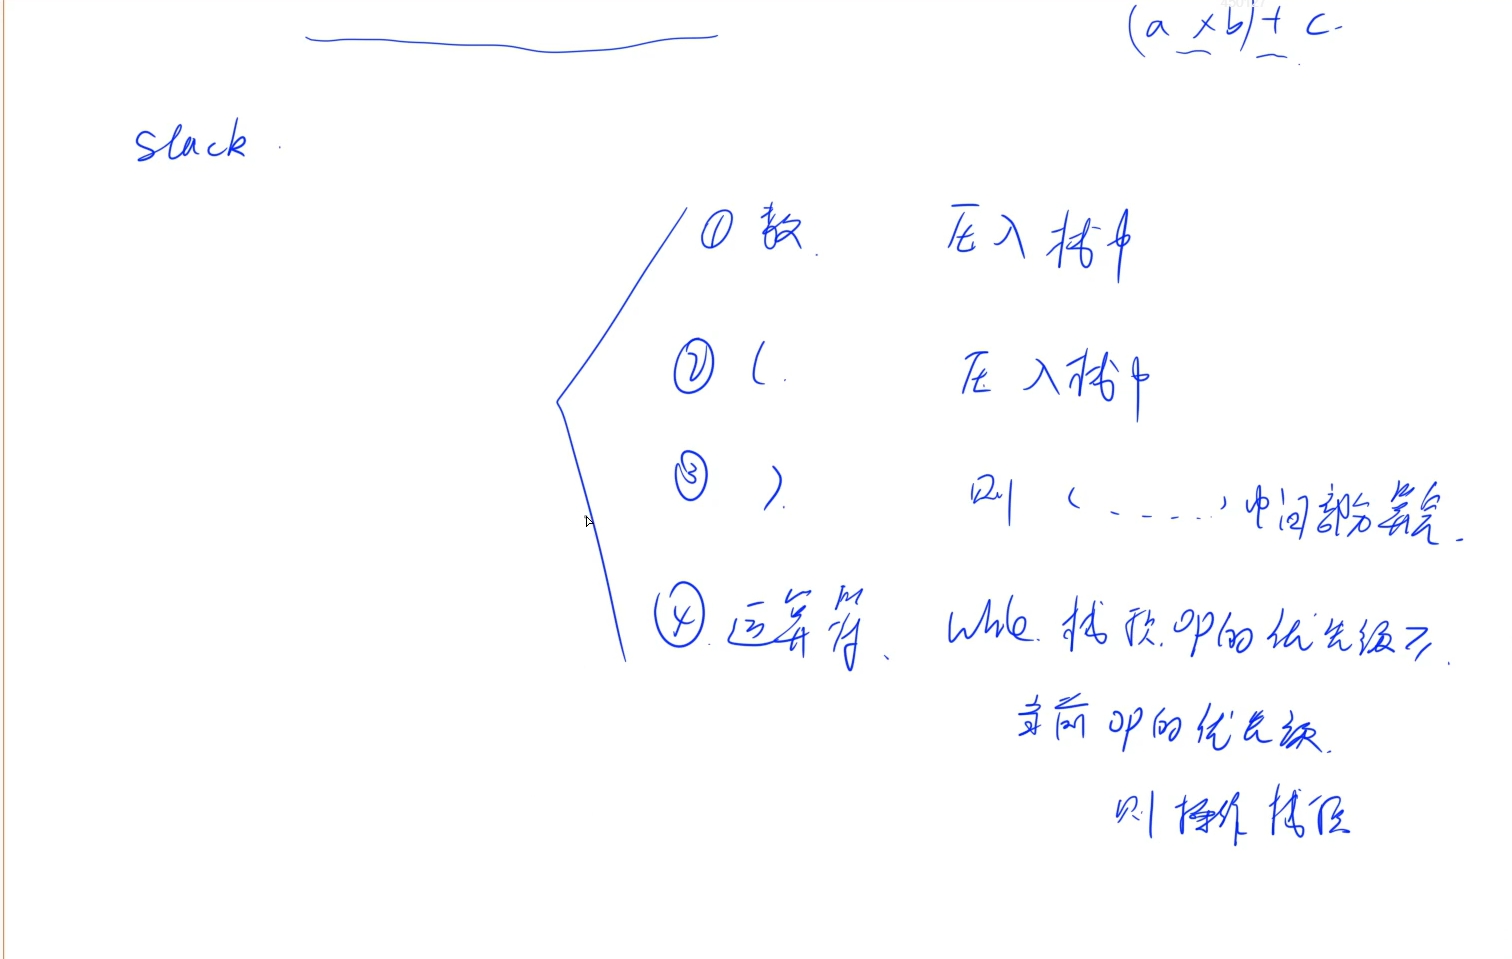 (a × b) + c.
stack.
① 数. 压入栈中
② (. 压入栈中
③ ). 则 (......) 中间部分算完.
④. 运算符、 while. 栈顶. op的优先级 ≥.
当前 op的优先级.
则操作栈顶